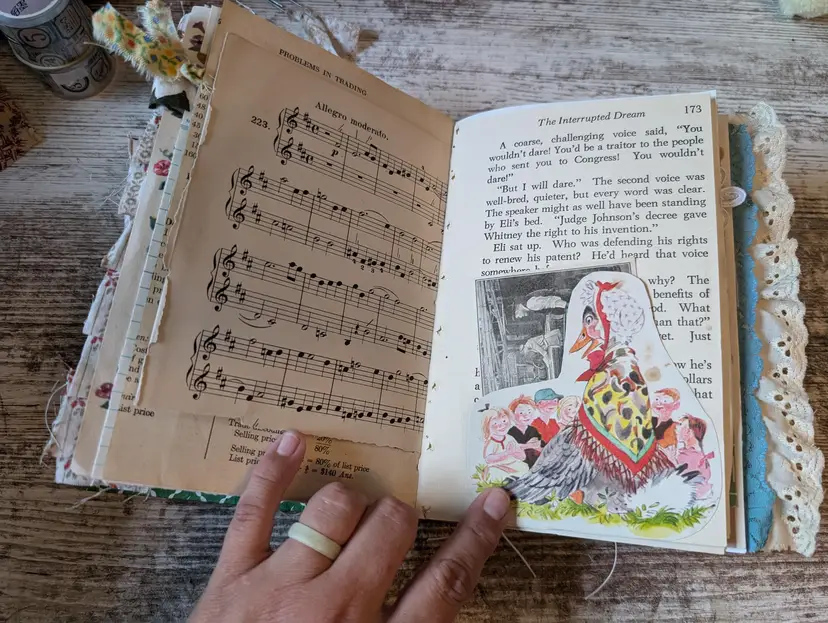 PROBLEMS IN TRADING
Allegro moderato.
223.
p
list price
Selling price
80%
Selling
List pric = 80% of list price
= $140 Ans.
The Interrupted Dream 173
A coarse, challenging voice said, “You
wouldn’t dare! You’d be a traitor to the people
who sent you to Congress! You wouldn’t
dare!”
“But I will dare.” The second voice was
well-bred, quieter, but every word was clear.
The speaker might as well have been standing
by Eli’s bed. “Judge Johnson’s decree gave
Whitney the right to his invention.”
Eli sat up. Who was defending his rights
to renew his patent? He’d heard that voice
somewhere
why? The
benefits of
What
than that?”
Just
he’s